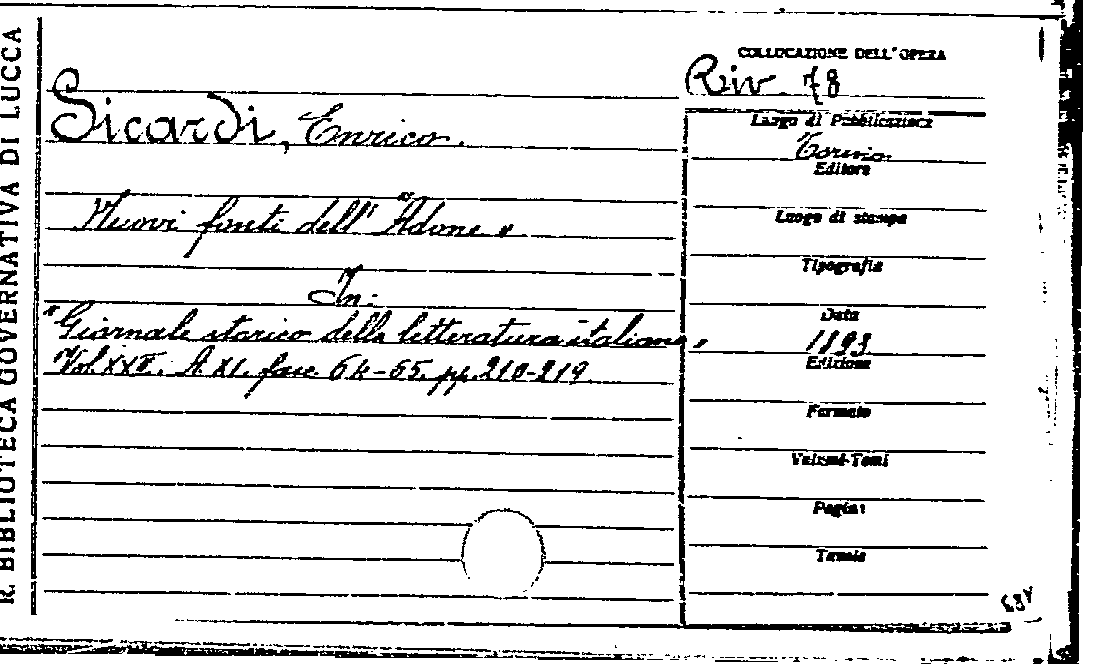 R. BIBLIOTECA GOVERNATIVA DI LUCCA
COLLOCAZIONE DELL'OPERA
Riv. 78
Sicardi, Enrico.
Nuovi fonti dell' "Adone"
In:
"Giornale storico della letteratura italiana"
Vol. A. XI. fasc. 64-65. pp. 210-219
Luogo di Pubblicazione
Torino
Editore
Luogo di stampa
Tipografia
Data
1893
Edizione
Formato
Volumi-Tomi
Pagine
Tavole